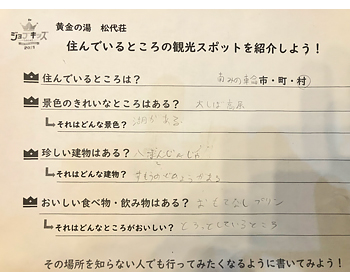 ジョブキッズ
黄金の湯 松代荘
住んでいるところの観光スポットを紹介しよう！
住んでいるところは？ 市・町・村）
景色のきれいなところはある？
それはどんな景色？ 湖がある
珍しい建物はある？
それはどんな建物？
おいしい食べ物・飲み物はある？ おもてなしプリン
それはどんなところがおいしい？ とろっとしているところ
その場所を知らない人でも行ってみたくなるように書いてみよう！